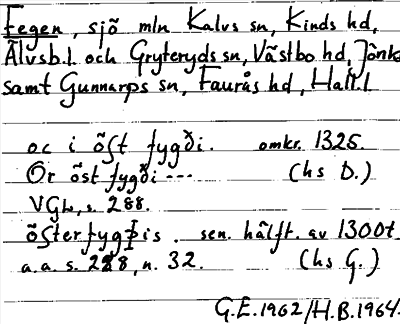 Fegen, sjö mln Kalvs sn, Kinds hd,
Älvsb.l och Gryteryds sn, Västbo hd, Jönk
samt Gunnarps sn, Faurås hd, Hall.l
oc i öſt fygði. omkr. 1325.
Or öst fygði --- (hs D.)
VGL, s. 288.
öſterfygþis. sen. hälft. av 1300t
a.a. s. 288, n. 32. (hs G.)
G.E.1962/H.B.1964.